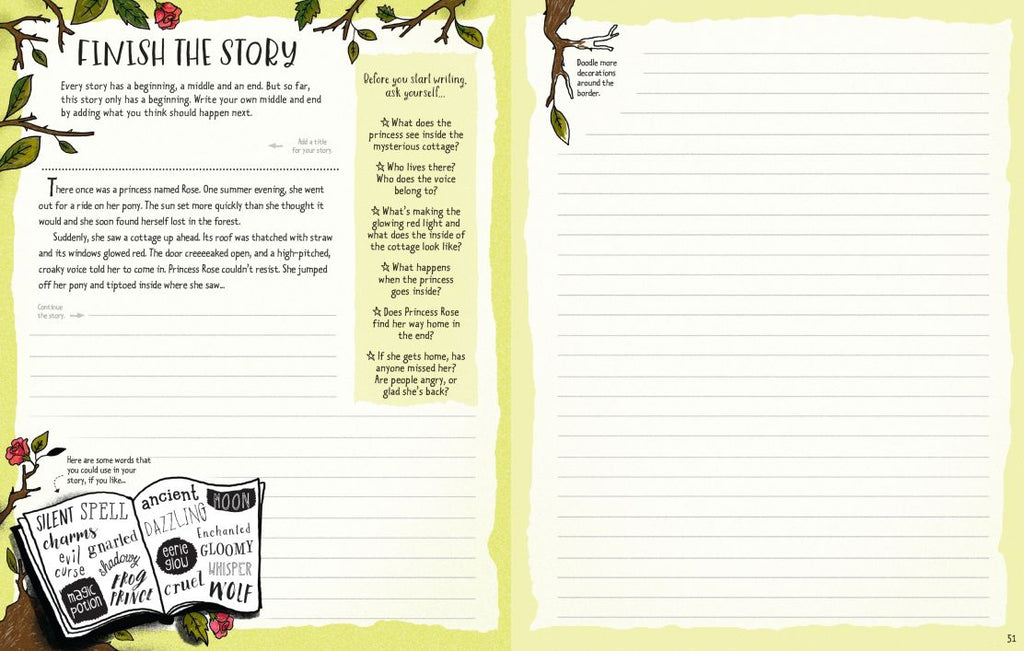 FINISH THE STORY
Every story has a beginning, a middle and an end. But so far,
this story only has a beginning. Write your own middle and end
by adding what you think should happen next.
Add a title
for your story.
There once was a princess named Rose. One summer evening, she went
out for a ride on her pony. The sun set more quickly than she thought it
would and she soon found herself lost in the forest.
Suddenly, she saw a cottage up ahead. Its roof was thatched with straw
and its windows glowed red. The door creeeeaked open, and a high-pitched,
croaky voice told her to come in. Princess Rose couldn't resist. She jumped
off her pony and tiptoed inside where she saw...
Continue
the story.
Before you start writing,
ask yourself...
☆ What does the
princess see inside the
mysterious cottage?
☆ Who lives there?
Who does the voice
belong to?
☆ What's making the
glowing red light and
what does the inside of
the cottage look like?
☆ What happens
when the princess
goes inside?
☆ Does Princess Rose
find her way home in
the end?
☆ If she gets home, has
anyone missed her?
Are people angry, or
glad she's back?
Here are some words that
you could use in your
story, if you like...
SILENT SPELL
charms
evil
curse
gnarled
shadowy
magic
potion
FROG
PRINCE
ancient
MOON
DAZZLING
Enchanted
eerie
glow
GLOOMY
WHISPER
cruel
WOLF
Doodle more
decorations
around the
border.
51